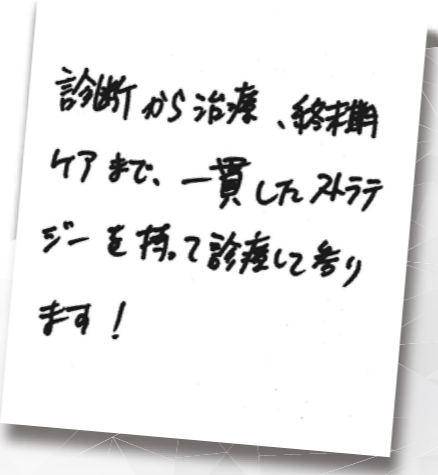 診断から治療、終末期
ケアまで、一貫したストラテ
ジーを持って診療して参り
ます！